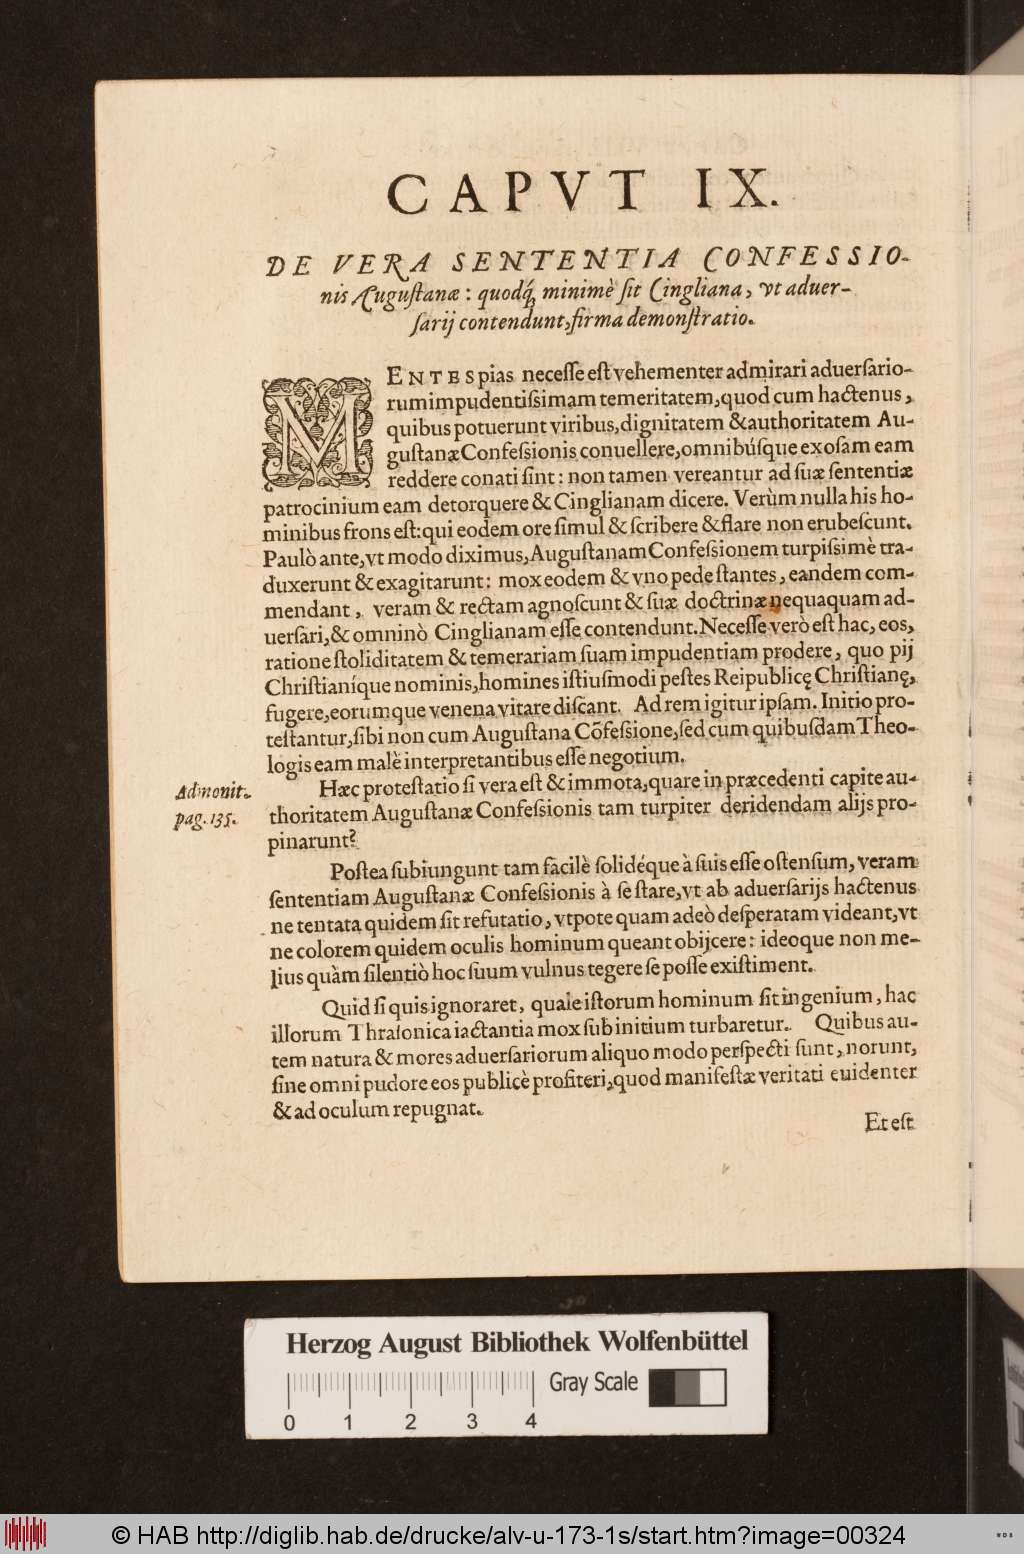 CAPVT IX.
DE VERA SENTENTIA CONFESSIO-
nis Augustanæ: quodq́, minimè sit Cingliana, vt aduer-
sarij contendunt, firma demonstratio.
MENTES pias necesse est vehementer admirari aduersario-
rum impudentissimam temeritatem, quod cum hactenus,
quibus potuerunt viribus, dignitatem & authoritatem Au-
gustanæ Confessionis conuellere, omnibúsque exosam eam
reddere conati sint: non tamen vereantur ad suæ sententiæ
patrocinium eam detorquere & Cinglianam dicere. Verùm nulla his ho-
minibus frons est: qui eodem ore simul & scribere & flare non erubescunt.
Paulò ante, vt modo diximus, Augustanam Confessionem turpissimè tra-
duxerunt & exagitarunt: mox eodem & vno pede stantes, eandem com-
mendant, veram & rectam agnoscunt & suæ doctrinæ nequaquam ad-
uersari, & omninò Cinglianam esse contendunt. Necesse verò est hac, eos,
ratione stoliditatem & temerariam suam impudentiam prodere, quo pij
Christianíque nominis, homines istiusmodi pestes Reipublicę Christianę,
fugere, eorumque venena vitare discant. Ad rem igitur ipsam. Initio pro-
testantur, sibi non cum Augustana Cõfessione, sed cum quibusdam Theo-
logis eam malè interpretantibus esse negotium.
Admonit.
pag. 135.
Hæc protestatio si vera est & immota, quare in præcedenti capite au-
thoritatem Augustanæ Confessionis tam turpiter deridendam alijs pro-
pinarunt?
Postea subiungunt tam facilè solidéque à suis esse ostensum, veram
sententiam Augustanæ Confessionis à se stare, vt ab aduersarijs hactenus
ne tentata quidem sit refutatio, vtpote quam adeò desperatam videant, vt
ne colorem quidem oculis hominum queant obijcere: ideoque non me-
lius quàm silentiò hoc suum vulnus tegere se posse existiment.
Quid si quis ignoraret, quale istorum hominum sit ingenium, hac
illorum Thrasonica iactantia mox sub initium turbaretur. Quibus au-
tem natura & mores aduersariorum aliquo modo perspecti sunt, norunt,
sine omni pudore eos publicè profiteri, quod manifestæ veritati euidenter
& ad oculum repugnat.
Et est
Herzog August Bibliothek Wolfenbüttel
Gray Scale
0 1 2 3 4
© HAB http://diglib.hab.de/drucke/alv-u-173-1s/start.htm?image=00324